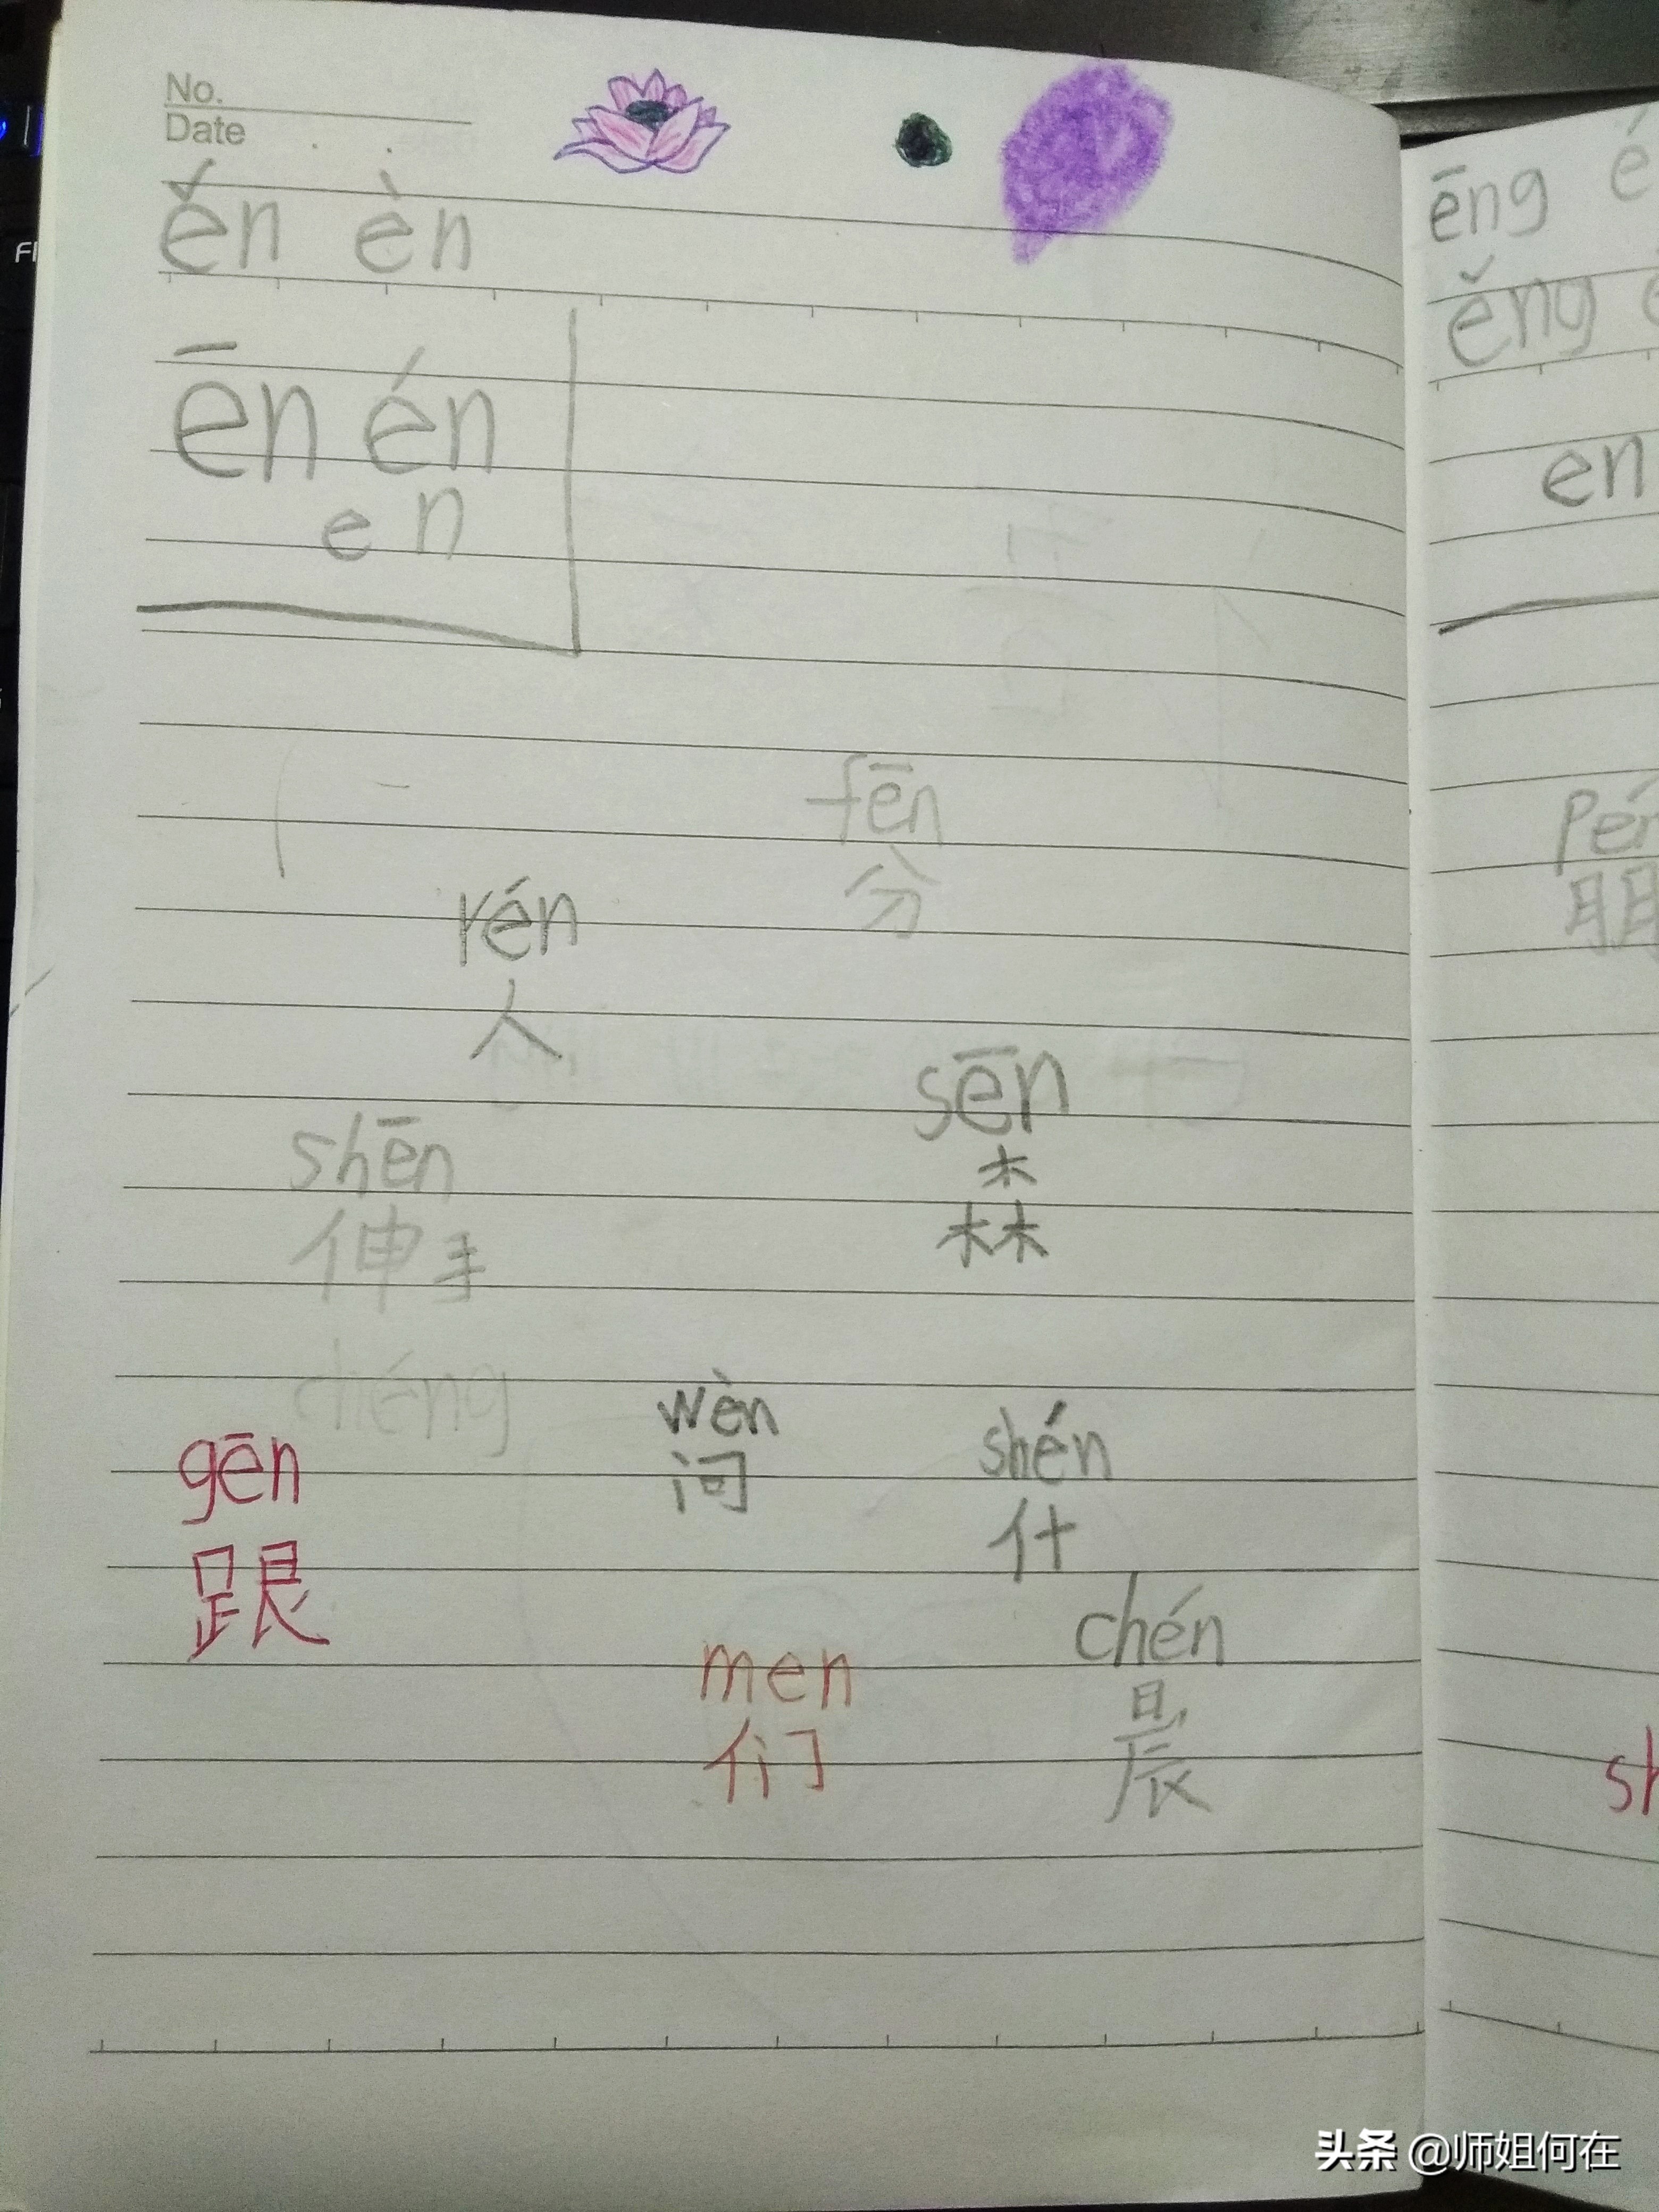 No.
Date
ěn èn
ēn én
en
fēn
分
rén
人
sēn
森
shēn
伸手
wèn
问
shén
什
gēn
跟
chén
晨
men
们
ēng
ěng
en
头条 @师姐何在